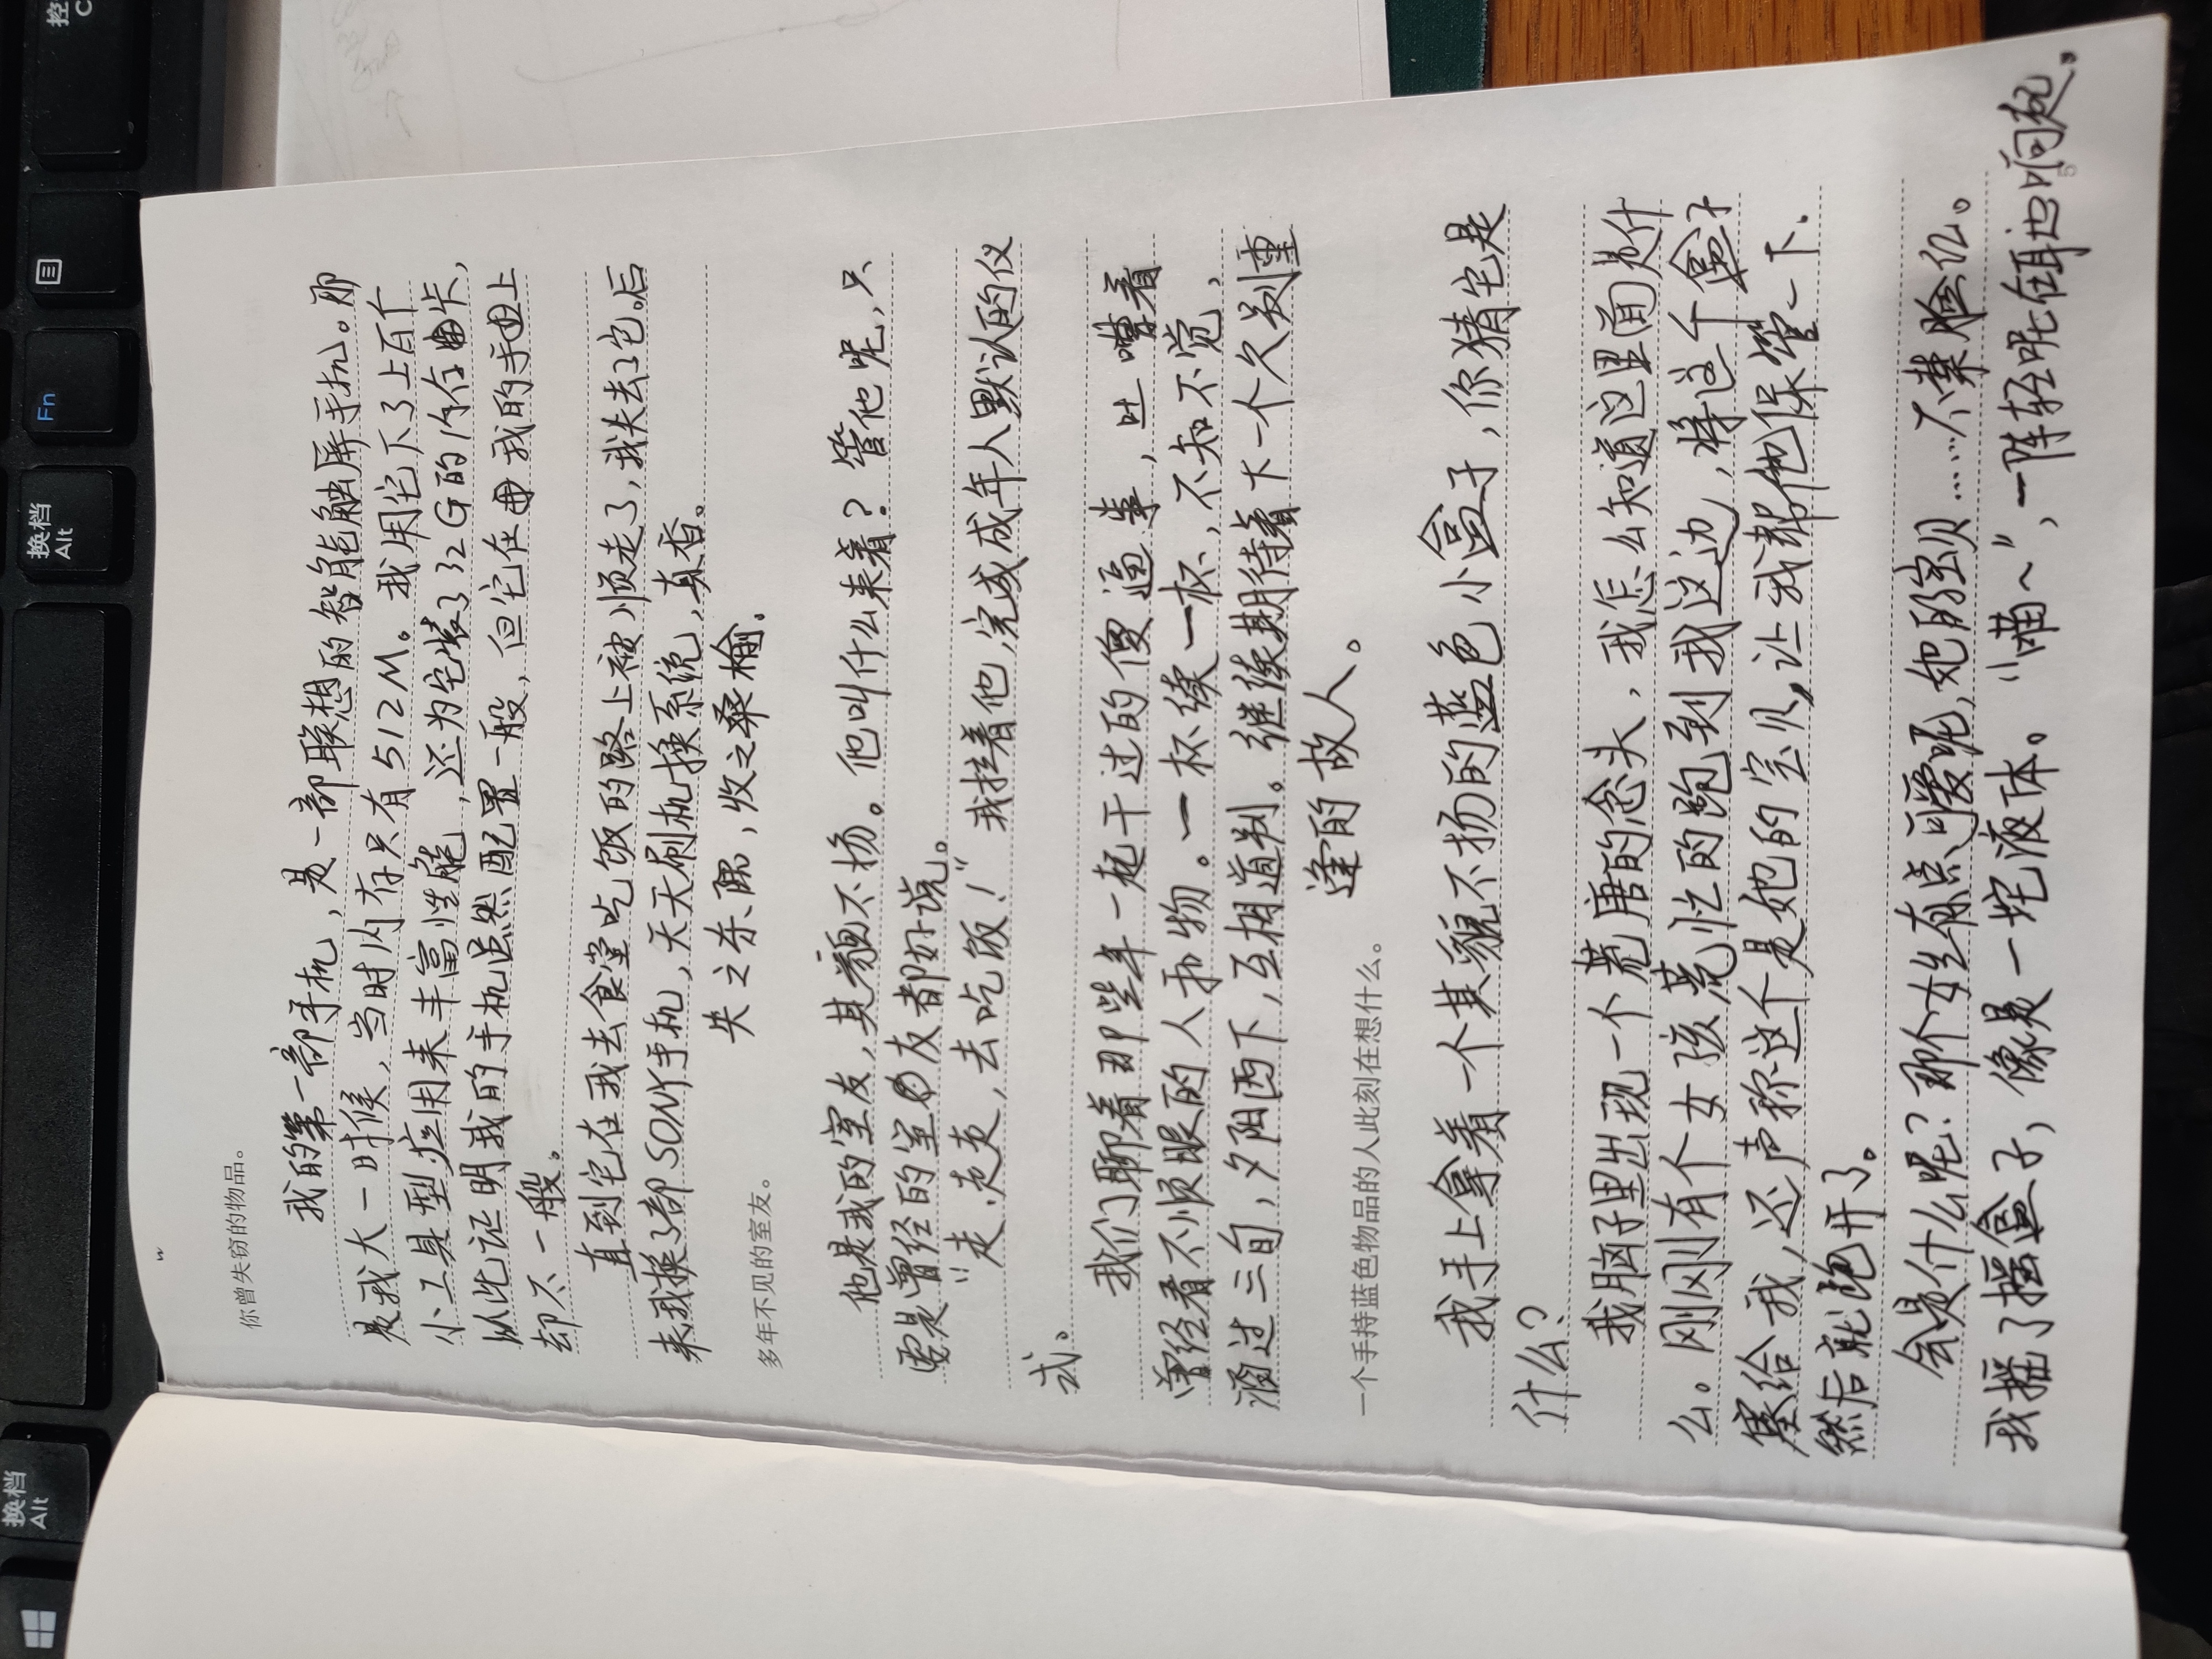 你曾失窃的物品。
我的第一部手机,是一部联想的智能触屏手机。那
是我大一时候,当时内存只有512M。我用它下了上百个
小工具型应用来丰富性能,还为它装了32G的内存卡,
从此证明我的手机虽然配置一般,但它在我的手上
却不一般。
直到它在我去食堂吃饭的路上被顺走了,我失去了它。后
来我换了部SONY手机,天天刷机换系统,真香。
失之东隅,收之桑榆.
多年不见的室友。
他是我的室友,其貌不扬。他叫什么来着?管他呢,只
要是曾经的室友都好说。
“走,走走,去吃饭!”我拉着他,完成成年人默认的仪
式。
我们聊着那些年一起干过的傻逼事,吐嘈着
曾经看不顺眼的人和物。一杯续一杯,不知不觉,
酒过三旬,夕阳西下,互相道别。继续期待着下一个久别重
逢的故人。
一个手持蓝色物品的人此刻在想什么。
我手上拿着一个其貌不扬的蓝色小盒子,你猜它是
什么?
我脑子里出现一个荒唐的念头,我怎么知道这里面是什
么。刚刚有个女孩慌忙的跑到我这边,将这个盒子
塞给我,还声称这个是她的宝贝,让我帮他保管一下.
然后就跑开了。
会是什么呢?那个女生有点可爱呢,她的宝贝……不禁脸红。
我摇了摇盒子,像是一坨液体。“喵~”,一阵轻呢在耳边响起。
5
换档
Alt
Fn
换档
Alt
控
C